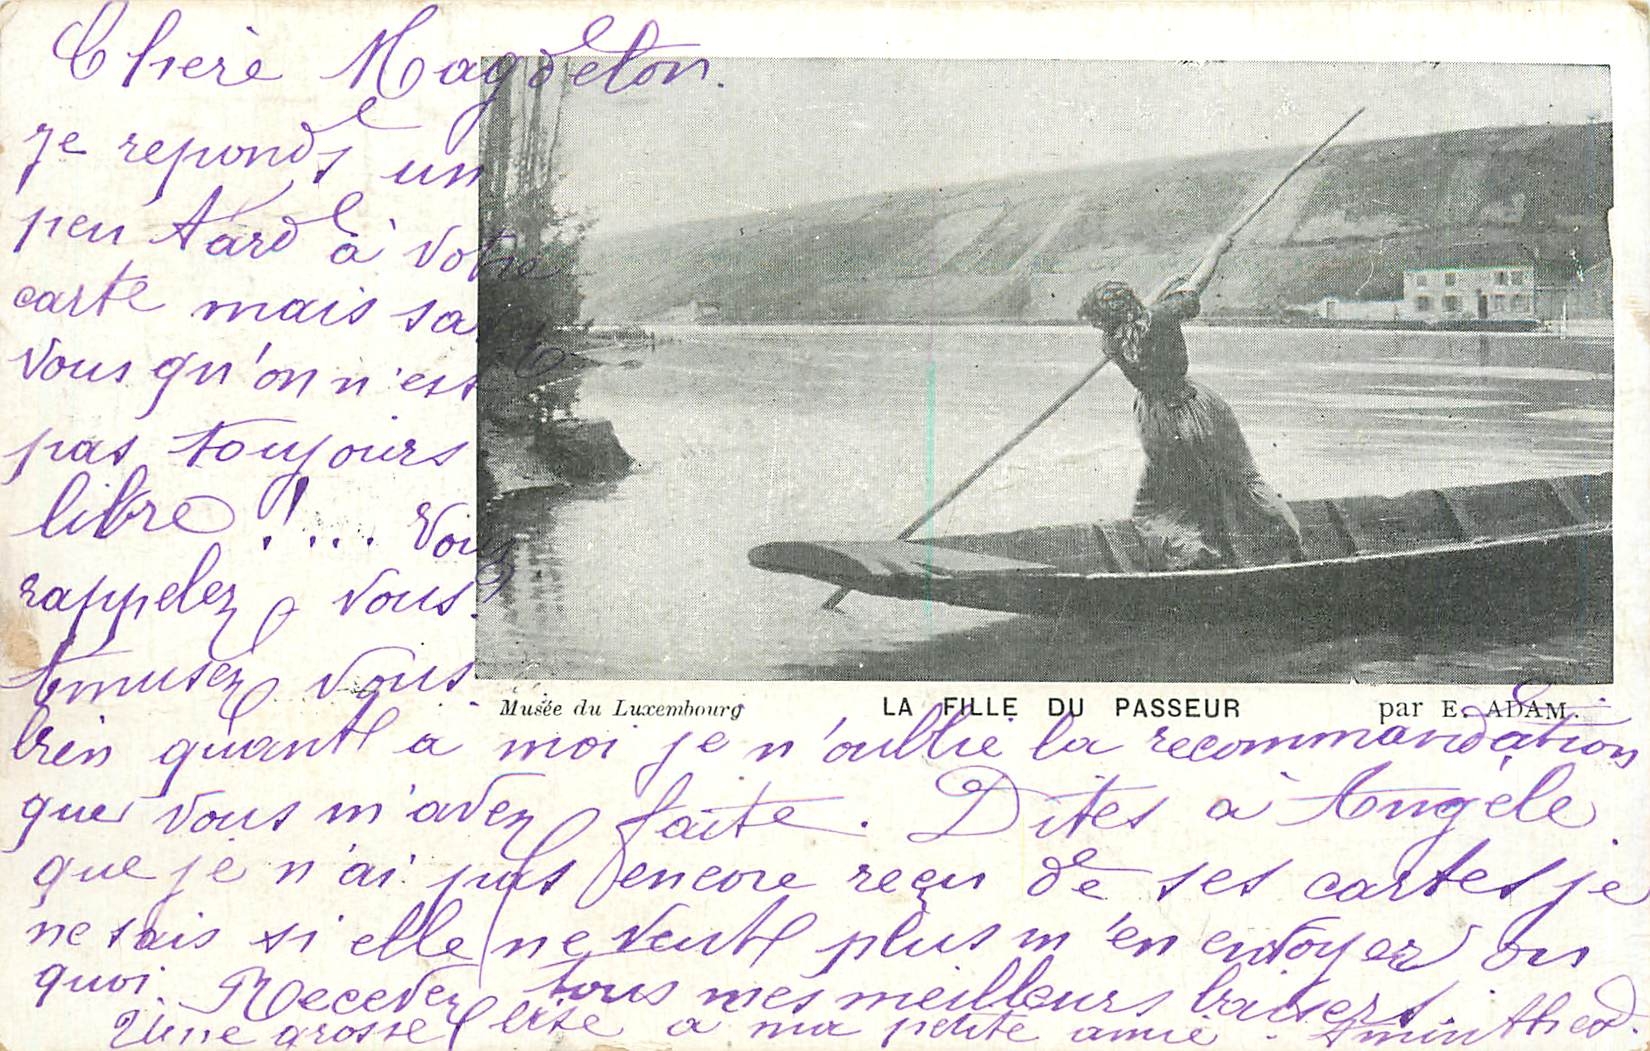 Chère Magdeton.
je reponds un
peu tard à votre
carte mais savez
vous qu'on n'est
pas toujours
libre !... Vous
rappelez vous.
Amusez vous
Musée du Luxembourg LA FILLE DU PASSEUR par E. ADAM.
bien quant a moi je n'oublie la recommandation
que vous m'avez faite. Dites à Angèle
que je n'ai pas encore reçu de ses cartes je
ne sais si elle ne veut plus m'en envoyer ou
quoi. Recevez tous mes meilleurs baisers
Une grosse bise a ma petite amie.